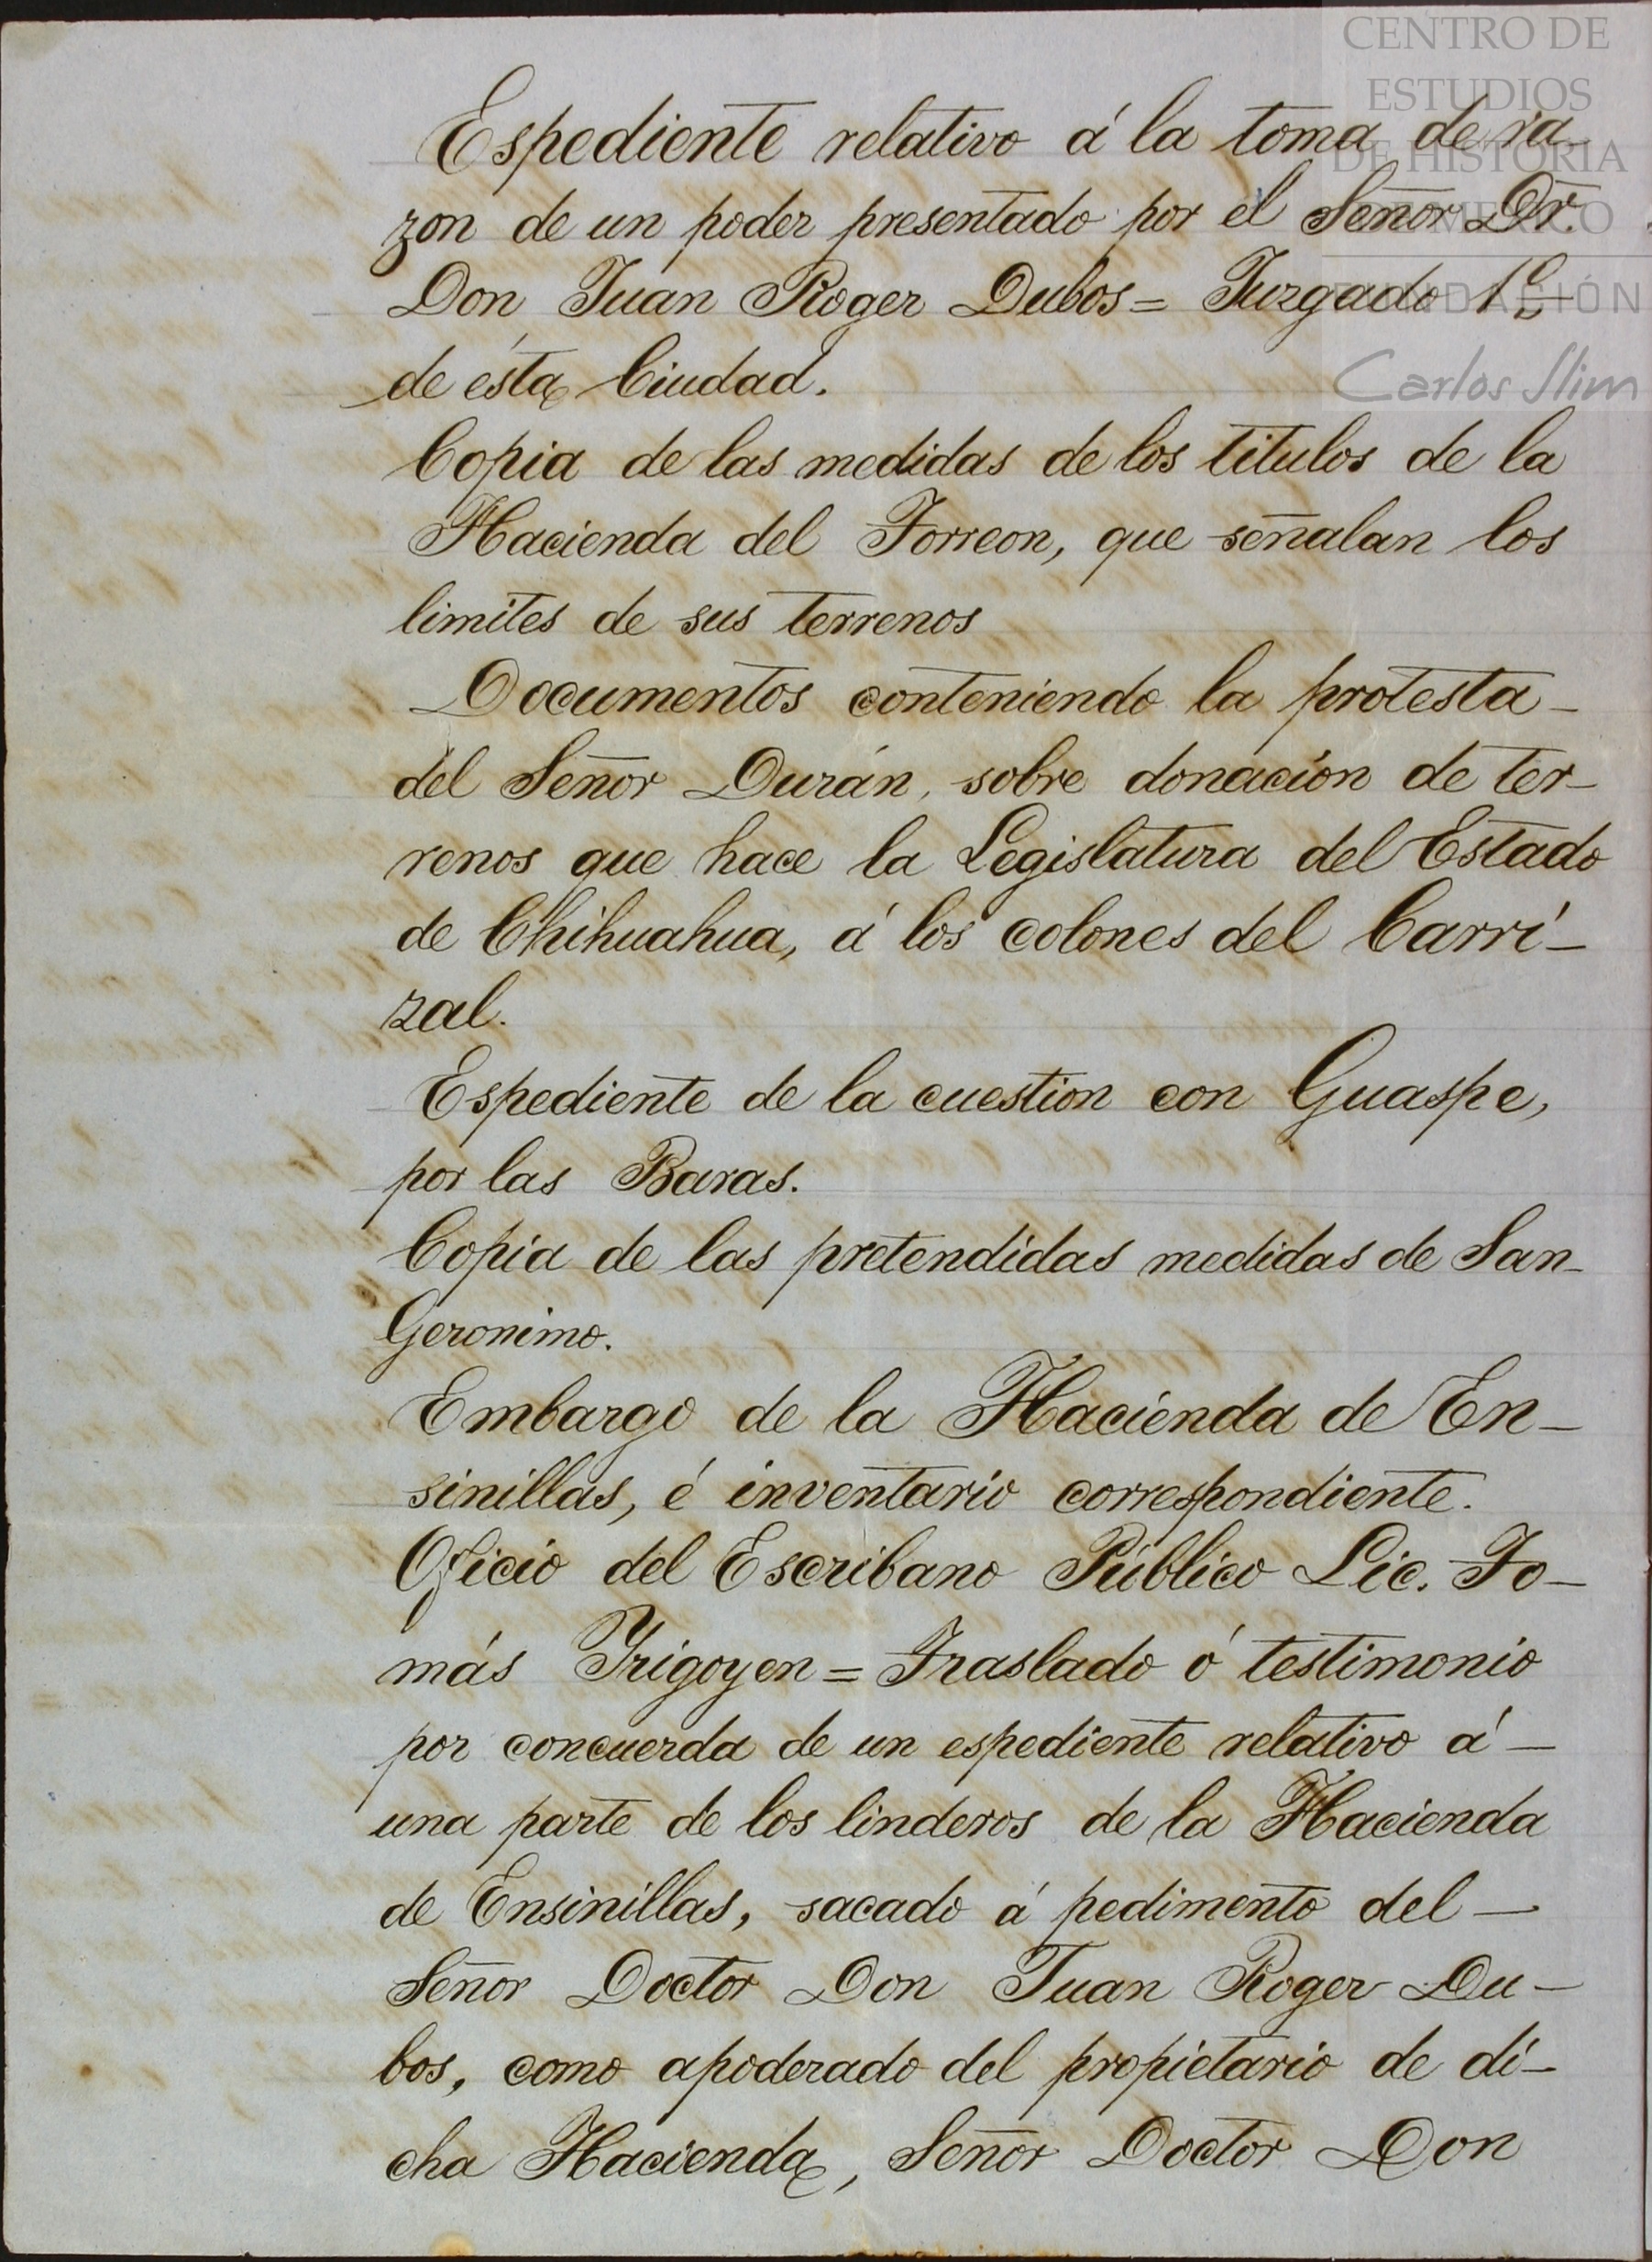 CENTRO DE
ESTUDIOS
DE HISTORIA
DE MÉXICO
FUNDACIÓN
Carlos Slim
Espediente relativo á la toma de ra-
zon de un poder presentado por el Señor Dr.
Don Juan Roger Dubos = Juzgado 1º
de ésta Ciudad.
Copia de las medidas de los titulos de la
Hacienda del Torreon, que señalan los
limites de sus terrenos
Documentos conteniendo la protesta -
del Señor Durán, sobre donacion de ter-
renos que hace la Legislatura del Estado
de Chihuahua, á los colones del Carri-
zal.
Espediente de la cuestion con Guaspe,
por las Baras.
Copia de las pretendidas medidas de San-
Geronimo.
Embargo de la Hacienda de En-
sinillas, é inventario correspondiente.
Oficio del Escribano Público Lic. To-
más Yrigoyen = Traslado ó testimonio
por concuerda de un espediente relativo á -
una parte de los linderos de la Hacienda
de Ensinillas, sacado á pedimento del -
Señor Doctor Don Juan Roger Du-
bos, como apoderado del propietario de di-
cha Hacienda, Señor Doctor Don